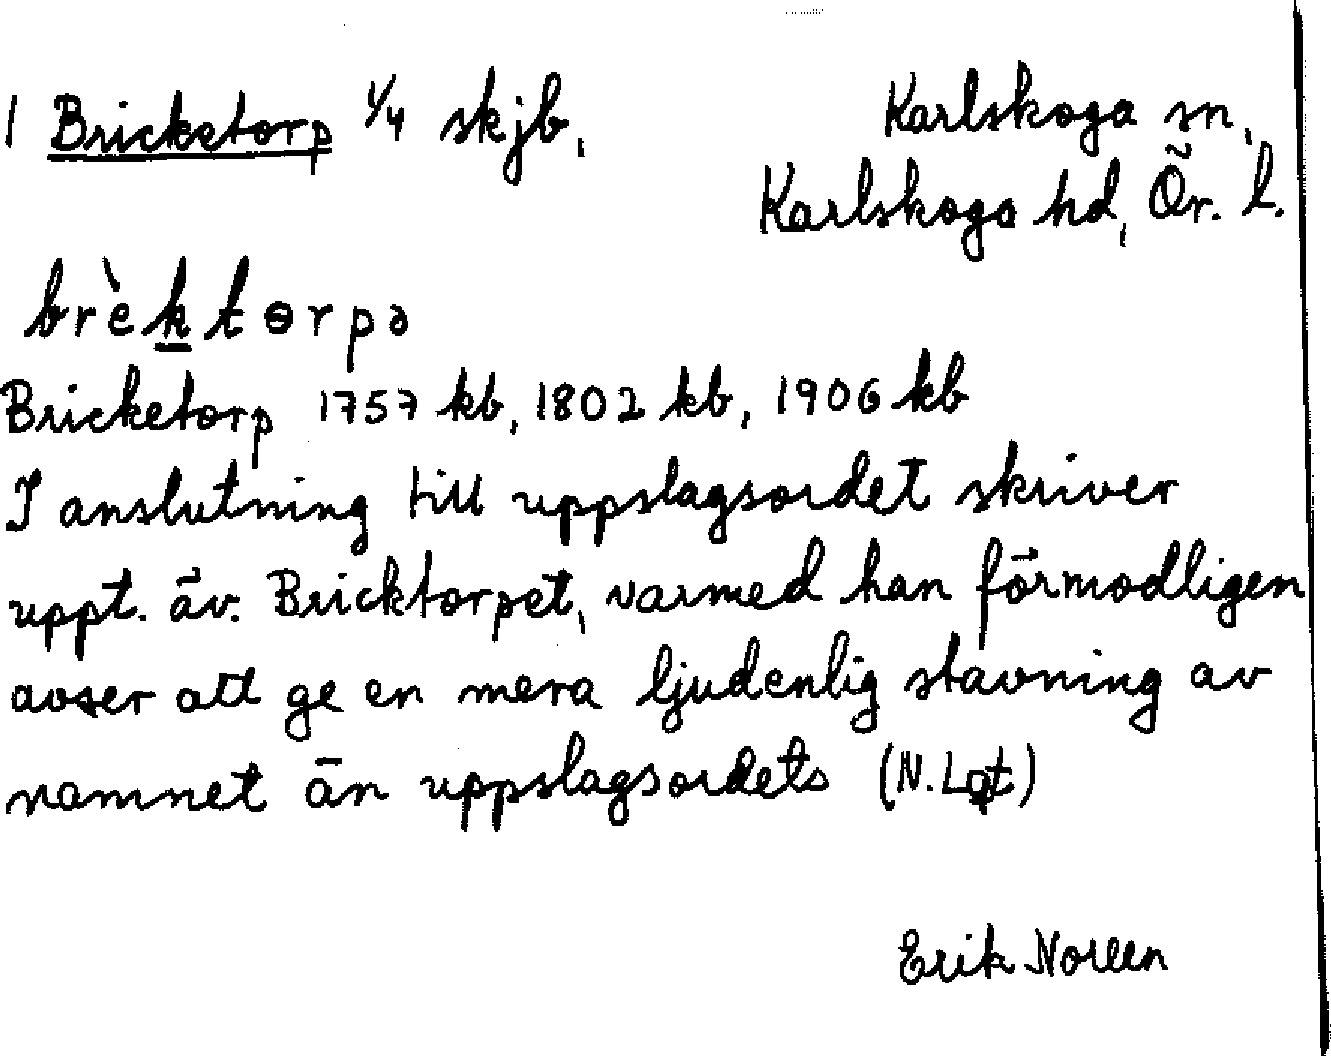 1 Bricketorp 1/4 skjb, Karlskoga sn,
Karlskoga hd, Ör. l.
brèktɵrpə
Bricketorp 1757 kb, 1802 kb, 1906 kb
I anslutning till uppslagsordet skriver
uppt. äv. Bricktorpet, varmed han förmodligen
avser att ge en mera ljudenlig stavning av
namnet än uppslagsordets (N. Lqt)
Erik Noreen